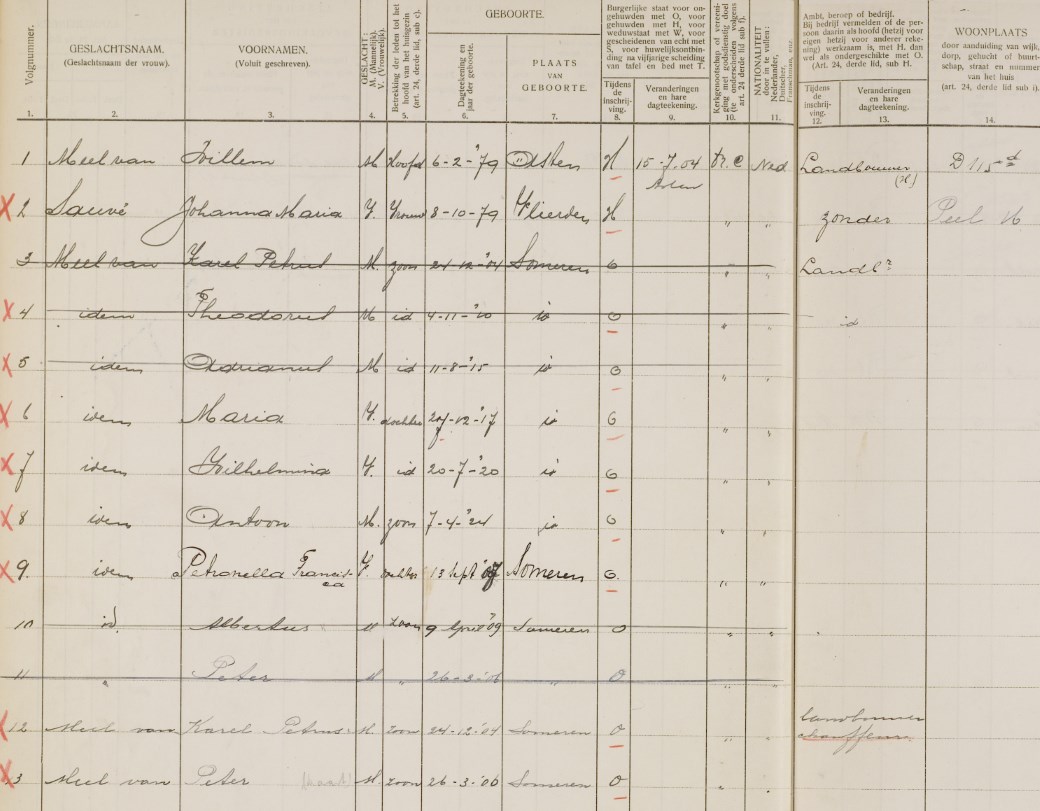 Volgnummer.
GESLACHTSNAAM.
(Geslachtsnaam der vrouw).
VOORNAMEN.
(Voluit geschreven).
GESLACHT:
M. (Mannelijk).
V. (Vrouwelijk).
Betrekking der leden tot het
hoofd van het huisgezin
(art. 24, derde lid, sub c).
GEBOORTE.
Dagteekening en
jaar der geboorte.
PLAATS
VAN
GEBOORTE.
Burgerlijke staat voor on-
gehuwden met O, voor
gehuwden met H, voor
weduwstaat met W, voor
gescheidenen van echt met
S, voor huwelijksontbin-
ding na vijfjarige scheiding
van tafel en bed met T.
Tijdens
de
inschrij-
ving.
Veranderingen
en hare
dagteekening.
Kerkgenootschap of vereeni-
ging met godsdienstig doel
(te onderscheiden volgens
art. 24 derde lid sub f).
NATIONALITEIT
door in te vullen:
Nederlander,
Duitscher,
Franschman, enz.
Ambt, beroep of bedrijf.
Bij bedrijf vermelden of de per-
soon daarin als hoofd (hetzij voor
eigen hetzij voor anderer reke-
ning) werkzaam is, met H, dan
wel als ondergeschikte met O.
(Art. 24, derde lid, sub H.
Tijdens
de
inschrij-
ving.
Veranderingen
en hare
dagteekening.
WOONPLAATS
door aanduiding van wijk,
dorp, gehucht of buurt-
schap, straat en nummer
van het huis
(art. 24, derde lid sub i).
1. 2. 3. 4. 5. 6. 7. 8. 9. 10. 11. 12. 13. 14.
1 Meel van Willem M Hoofd 6-2-'79 Asten H 15-7-04 Ned Landbouwer (H.) D 115d
Asten
X 2 Sauvé Johanna Maria V. Vrouw 8-10-79 Vlierden H " " zonder Peel
3 Meel van Karel Petrus M. zoon 24-12-'04 Someren O " " Landbr
X 4 idem Theodorus M id 4-11-'10 id O " " id
X 5 idem Adrianus M id 11-8-'15 id O " "
X 6 idem Maria V. dochter 27-12-'17 id O " "
X 7 idem Wilhelmina V. id 20-7-'20 id O " "
X 8 idem Antoon M. zoon 7-4-'24 id O " "
X 9. idem Petronella Francis- V. dochter 13 Sept '07 Someren O. " "
ca
10 id. Albertus M zoon 9 April '09 Someren O " "
11 " Peter M " 26-3-'06 " O " "
X 12 Meel van Karel Petrus M. zoon 24-12-'04 Someren O " " landbouwer
chauffeur
X 13 Meel van Peter M zoon 26-3-'06 Someren O "